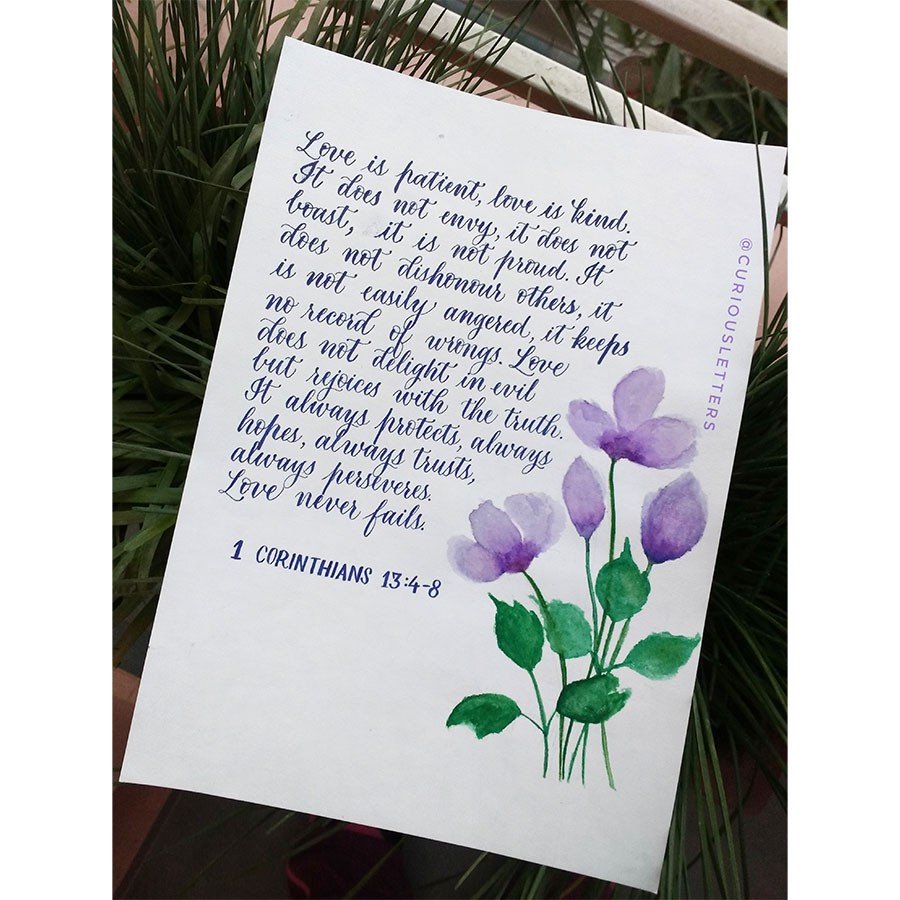 Love is patient, love is kind.
It does not envy, it does not
boast, it is not proud. It
does not dishonour others, it
is not easily angered, it keeps
no record of wrongs. Love
does not delight in evil
but rejoices with the truth.
It always protects, always
hopes, always trusts,
always perseveres.
Love never fails.
1 CORINTHIANS 13:4-8
@CURIOUSLETTERS